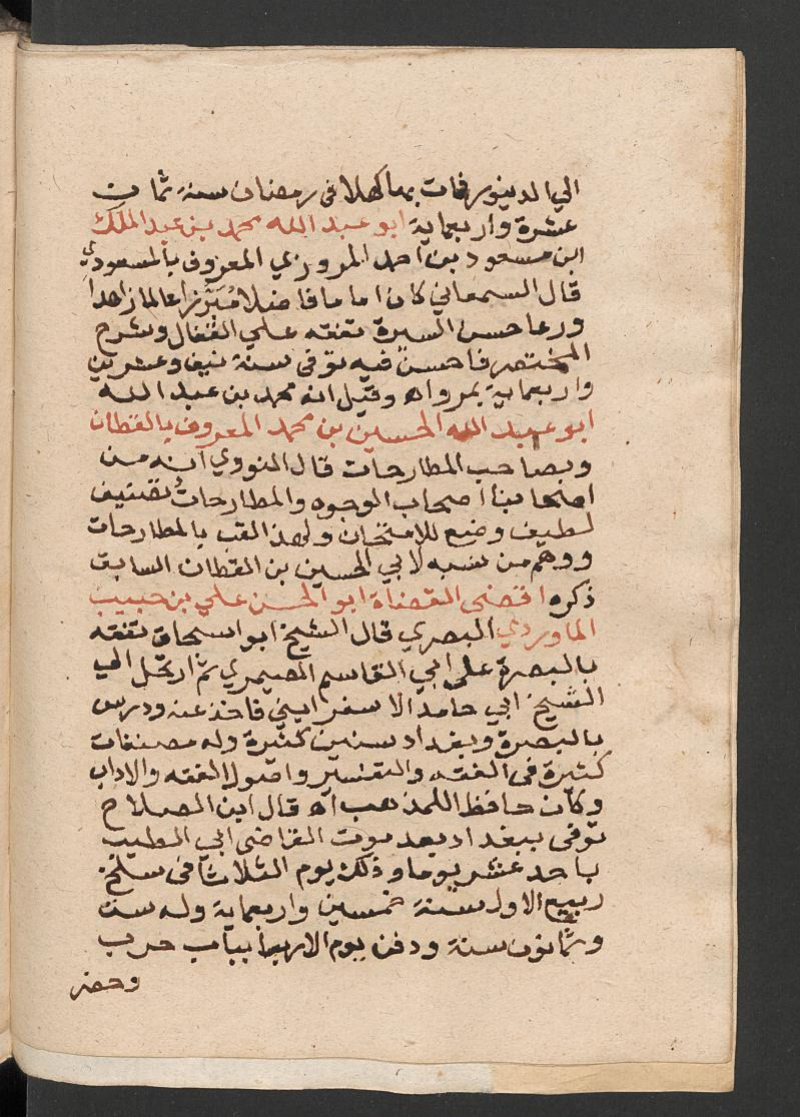 الي الدينور فمات بها كهلا فى رمضان سنة ثمان
عشرة واربعماية ابو عبد الله محمد بن عبد الملك
ابن مسعود بن احمد المروزي المعروف بالمسعودي
قال السمعاني كان اماما فاضلا مبرزا عالما زاهدا
ورعا حسن السيرة تفقه علي القفال وشرح
المختصر فاحسن فيه توفى سنة نيف وعشرين
واربعماية بمرو اه وقيل انه محمد بن عبد الله
ابو عبد الله الحسين بن محمد المعروف بالقطان
وبصاحب المطارحات قال النووي انه من
اصحابنا اصحاب الوجوه والمطارحات تصنيف
لطيف وضع للامتحان ولهذا لقب بالمطارحات
ووهم من نسبه لابي الحسين بن القطان السابق
ذكره اقضى القضاة ابو الحسن علي بن حبيب
الماوردي البصري قال الشيخ ابو اسحاق تفقه
بالبصرة على ابي القاسم الصيمري ثم ارتحل الي
الشيخ ابي حامد الاسفرايني فاخذ عنه ودرس
بالبصرة وبغداد سنين كثيرة وله مصنفات
كثيرة فى الفقه والتفسير واصول الفقه والاداب
وكان حافظا للمذهب اه قال ابن الصلاح
توفى ببغداد بعد موت القاضى ابي الطيب
باحد عشر يوما وذلك يوم الثلاثا فى سلخ
ربيع الاول سنة خمسين واربعماية وله ست
وثمانون سنة ودفن يوم الاربعا بباب حرب
وحضر